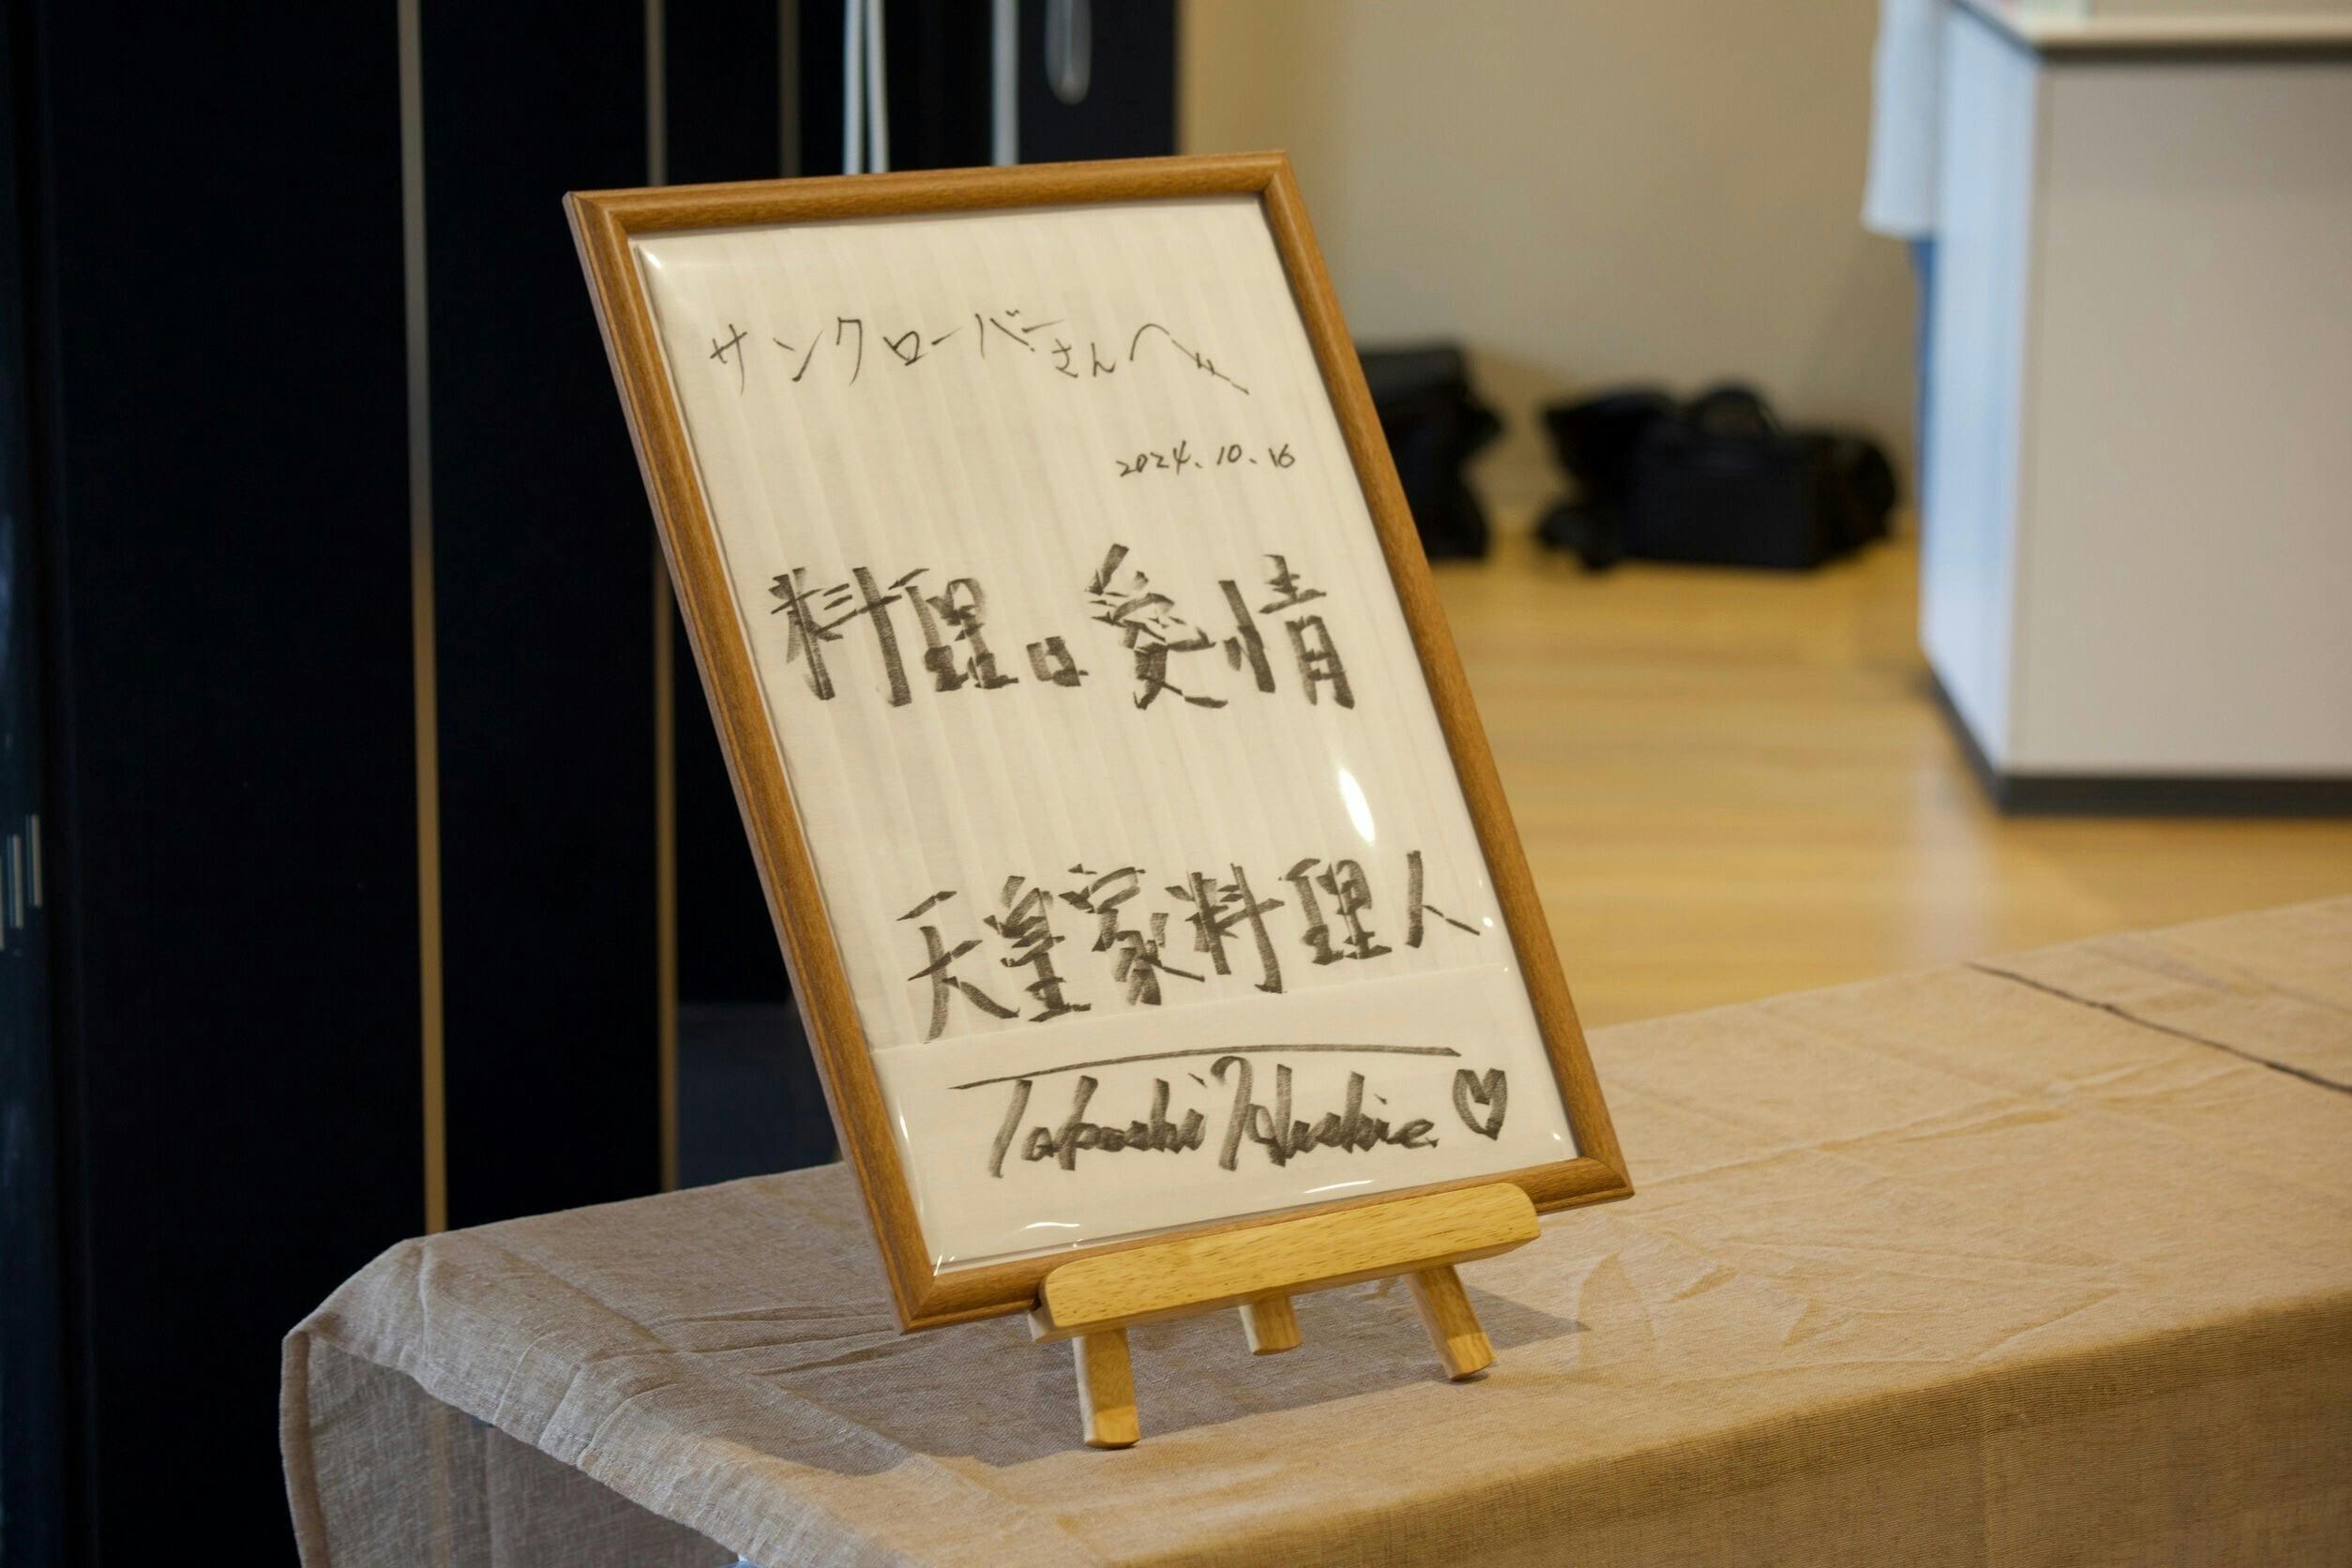 サンクローバーさんへ
2024.10.16
料理は愛情
天皇家料理人
Takashi